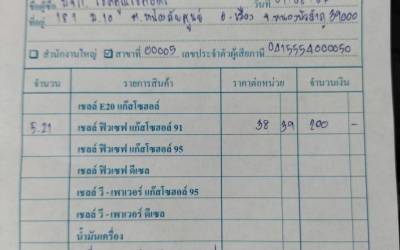 ชื่อผู้ซื้อ วันที่
ที่อยู่ 181 ม.10 ต.หนองภัยศูนย์ อ.เมือง จ.หนองบัวลำภู 39000
สำนักงานใหญ่ สาขาที่ 00005 เลขประจำตัวผู้เสียภาษี 0415554000050
จำนวน รายการสินค้า ราคาต่อหน่วย จำนวนเงิน
เชลล์ E20 แก๊สโซฮอล์
5.21 เชลล์ ฟิวเซฟ แก๊สโซฮอล์ 91 38 39 200 -
เชลล์ ฟิวเซฟ แก๊สโซฮอล์ 95
เชลล์ ฟิวเซฟ ดีเซล
เชลล์ วี - เพาเวอร์ แก๊สโซฮอล์ 95
เชลล์ วี - เพาเวอร์ ดีเซล
น้ำมันเครื่อง